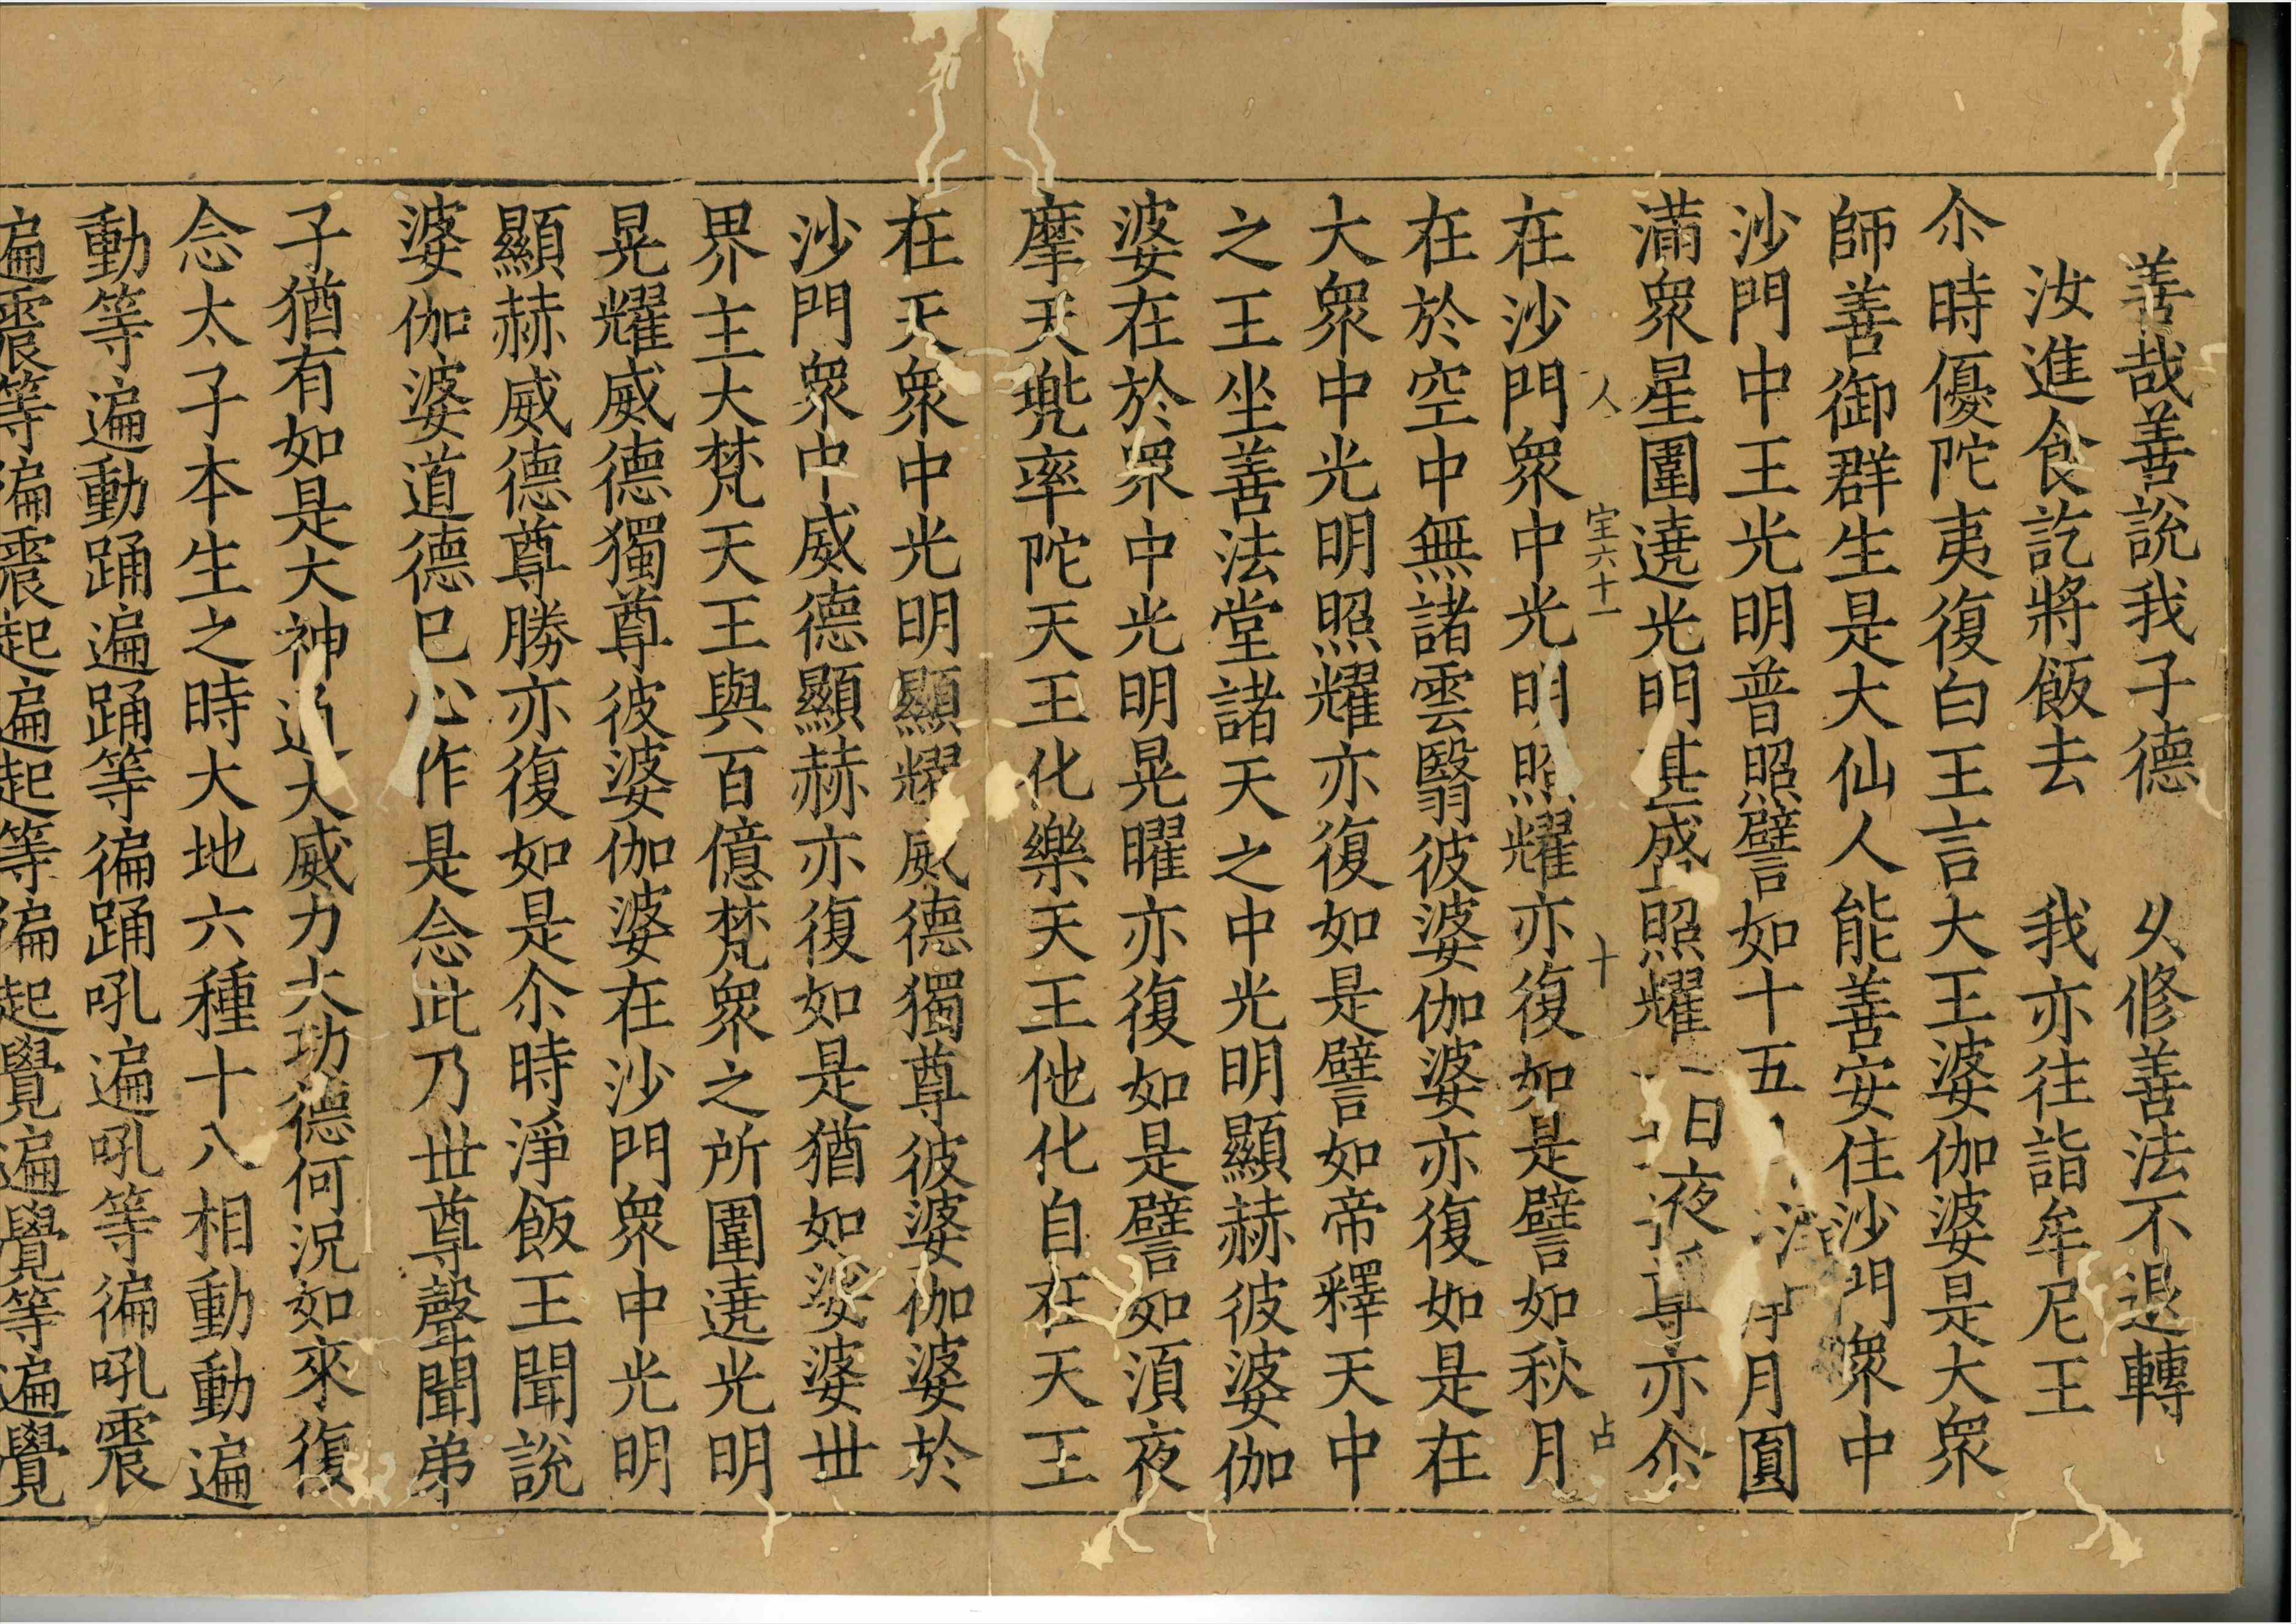 善哉善說我子德　乆修善法不退轉
汝進食訖將飯去　我亦往詣牟尼王
尒時優陀夷復白王言大王婆伽婆是大衆
師善御群生是大仙人能善安住沙門衆中
沙門中王光明普照譬如十五月圓
滿衆星圍遶光明甚盛照耀日夜尊亦尒
人　宝六十一　十　占
在沙門衆中光明照耀亦復如是譬如秋月
在於空中無諸雲翳彼婆伽婆亦復如是在
大衆中光明照耀亦復如是譬如帝釋天中
之王坐善法堂諸天之中光明顯赫彼婆伽
婆在於衆中光明晃曜亦復如是譬如須夜
摩天兠率陀天王化樂天王他化自在天王
在天衆中光明顯耀威德獨尊彼婆伽婆於
沙門衆中威德顯赫亦復如是猶如娑婆世
界主大梵天王與百億梵衆之所圍遶光明
晃耀威德獨尊彼婆伽婆在沙門衆中光明
顯赫威德尊勝亦復如是尒時淨飯王聞說
婆伽婆道德已心作是念此乃世尊聲聞弟
子猶有如是大神通大威力大功德何況如來復
念太子本生之時大地六種十八相動動遍
動等遍動踊遍踊等徧踊吼遍吼等徧吼震
遍震等徧震起遍起等徧起覺遍覺等遍覺